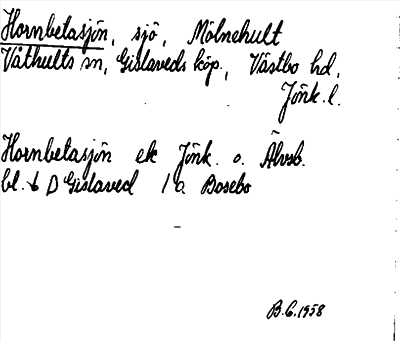 Hornbetasjön, sjö, Mölnehult
Våthults sn, Gislaveds köp., Västbo hd,
Jönk. l.
Hornbetasjön ek Jönk. o. Älvsb.
bl. 6 D Gislaved 1 a Bosebo
B.G. 1958